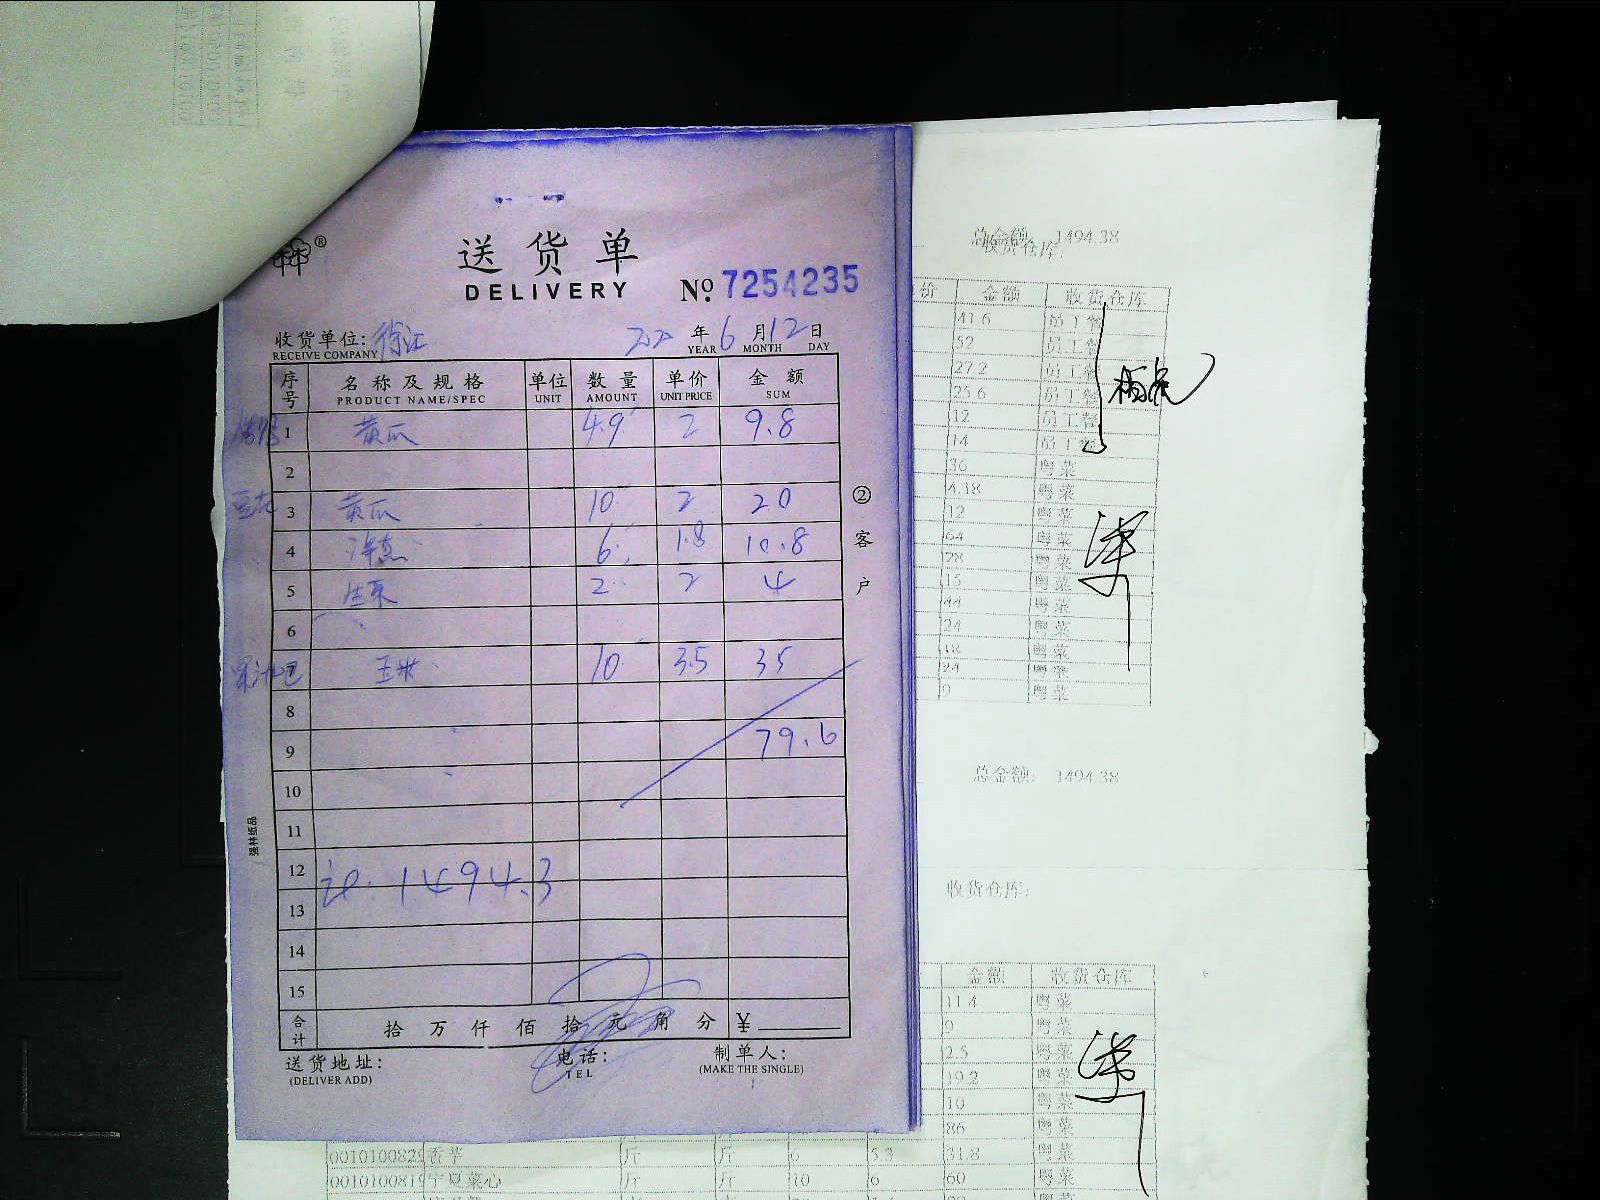 送货单
DELIVERY
№ 7254235
收货单位: 徐汇
RECEIVE COMPANY
年 6 月 12 日
YEAR MONTH DAY
序号 名称及规格 单位 数量 单价 金额
PRODUCT NAME/SPEC UNIT AMOUNT UNIT PRICE SUM
1 黄瓜 4.9 2 9.8
2
3 黄瓜 10 2 20
4 洋葱 6 1.8 10.8
5 生菜 2 2 4
6
7 玉米 10 3.5 35
8
9 79.6
10
11
12 1494.3
13
14
15
合计 拾万仟佰拾元角分 ¥
送货地址: 电话: 制单人:
(DELIVER ADD) TEL (MAKE THE SINGLE)
②客户
强林纸品
总金额: 1494.38
收货仓库:
价 金额 收货仓库
41.6 员工餐
52 员工餐
27.2 员工餐
25.6 员工餐
12 员工餐
14 员工餐
36 粤菜
4.18 粤菜
12 粤菜
64 粤菜
28 粤菜
15 粤菜
44 粤菜
24 粤菜
18 粤菜
24 粤菜
9 粤菜
总金额: 1494.38
收货仓库:
金额 收货仓库
11.4 粤菜
9 粤菜
2.5 粤菜
19.2 粤菜
10 粤菜
86 粤菜
香芋 斤 斤 6 5.3 31.8 粤菜
宁夏菜心 斤 斤 10 6 60 粤菜